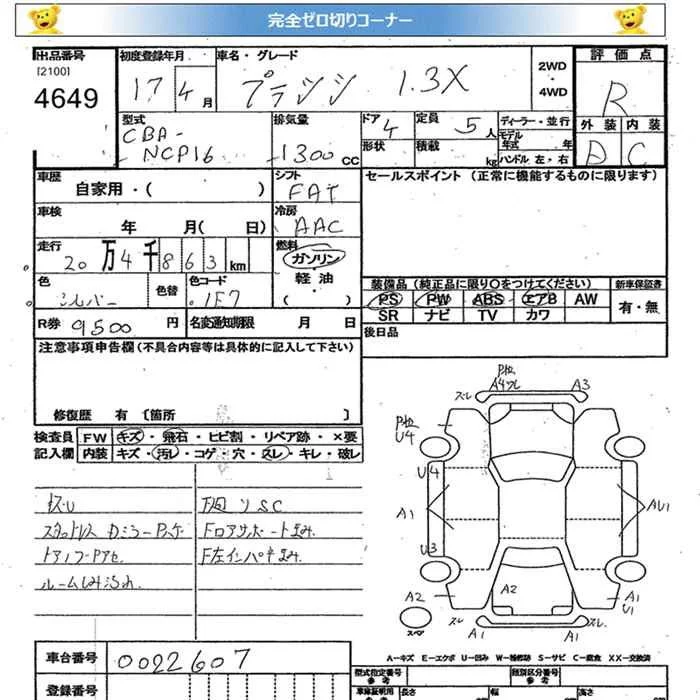 完全ゼロ切りコーナー
出品番号 初度登録年月 車名・グレード 2WD・4WD 評価点
[2100]
4649 17 4月 プラッツ 1.3X R
型式 排気量 ドア 定員 ディーラー・並行 外装 内装
CBA- 4 5人 モデル年式 年 D C
NCP16 1300cc 形状 積載 kg ハンドル 左・右
車歴 シフト セールスポイント (正常に機能するものに限ります)
自家用・( ) FAT
車検 冷房
年 月( 日) AAC
走行 燃料
20万4千863km ガソリン
軽油・( )
色 色替 色コード 装備品 (純正品に限り○をつけてください) 新車保証書
シルバー 1F7 PS PW ABS エアB AW 有・無
SR ナビ TV カワ
R券 9500円 名変通知期限 月 日 後日品
注意事項申告欄 (不具合内容等は具体的に記入して下さい)
修復歴 有 〔箇所 〕
検査員 FW キズ・飛石・ヒビ割・リペア跡・×要
記入欄 内装 キズ・汚レ・コゲ・穴・スレ・キレ・破レ
キズU
ルームしみ汚れ
P位 A4 ズレ A3
P位
U4
U4
A1 AU1
U3
A2 A2 A1
U1
ズレ A1 A1 ズレ
スペア
A－キズ E－エクボ U－凹み W－補修跡 S－サビ C－腐食 XX－交換済
車台番号 0022607 型式指定番号 参考 類別区分番号 参考
登録番号 車庫証明用 参考 長さ 幅 高さ